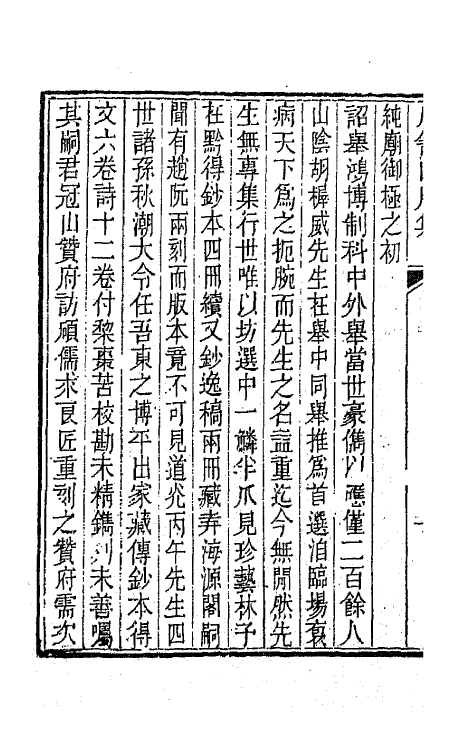 純廟御極之初
詔舉鴻博制科中外舉當世豪儁以應僅二百餘人
山陰胡樨威先生在舉中同舉推爲首選洎臨場裒
病天下爲之扼腕而先生之名益重迄今無閒然先
生無專集行世唯以坊選中一鱗半爪見珍藝林予
在黔得鈔本四冊續又鈔逸稿兩冊藏弆海源閣嗣
聞有趙阮兩刻而版本竟不可見道光丙午先生四
世諸孫秋潮大令任吾東之博平出家藏傳鈔本得
文六卷詩十二卷付棃棗苦校勘未精鐫刋未善囑
其嗣君冠山贊府訪碩儒求良匠重刻之贊府需次